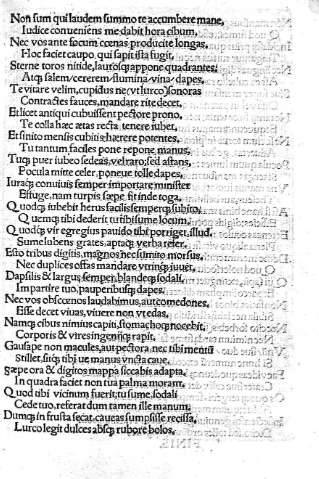 Non sum qui laudem summo te accumbere mane,
Iudice conueniens me dabit hora cibum,
Nec vos ante focum cœnas producite longas,
Hoc faciet caupo, qui sapit ista fugit,
Sterne toros nitide, lauꝛosq; appone quadrantes,
Atq; salem, cererem, flumina, vina, dapes,
Te vitare velim, cupidus ne (vt lurco) sonoras
Contractes fauces, mandare rite decet,
Et licet antiqui cubuissent pectore prono,
Te colla hæc ætas recta tenere iubet,
Et sinito mensis cubiti ne hærere potentes,
Tu tantum faciles pone repone manus,
Tuq; puer iubeo sedeas, vel raro; sed astans,
Pocula mitte celer, pone ue tolle dapes,
Iuraq; conuiuis semper importare minister
Effuge, nam turpis sæpe fit inde toga,
Quodq; iubebit herus facilis semperq; subito,
Quemq; tibi dederit tu tibi sume locum,
Quodq; vir egregius pauido tibi porriget, illud,
Sume lubens, grates, aptaq; verba refer,
Esto tribus digitis, magnos nec sumito morsus,
Nec duplices offas mandare vtrinq; iuuet,
Dapsilis & largus semper, blandeq; sodali,
Impartire tuo, pauperibusq; dapes,
Nec vos obscœnos laudabimus, aut comedones,
Esse decet viuas, viuere non vt edas,
Namq; cibus nimius capit, stomachoq; nocebit,
Corporis & vires ingeniiq; rapit,
Gausape non macules, aut pectora nec tibi mentū
Stillet, sitq; tibi ne manus vncta caue,
Sæpe ora & digitos mappa siccabis adapta,
In quadra faciet non tua palma moram,
Quod tibi vicinum fuerit, tu sume, sodali
Cede tuo, referat dum tamen ille manum,
Dumq; in frusta secat caueas sumpsisse recissa,
Lurco legit dulces absq; rubore bolos,
FINIS